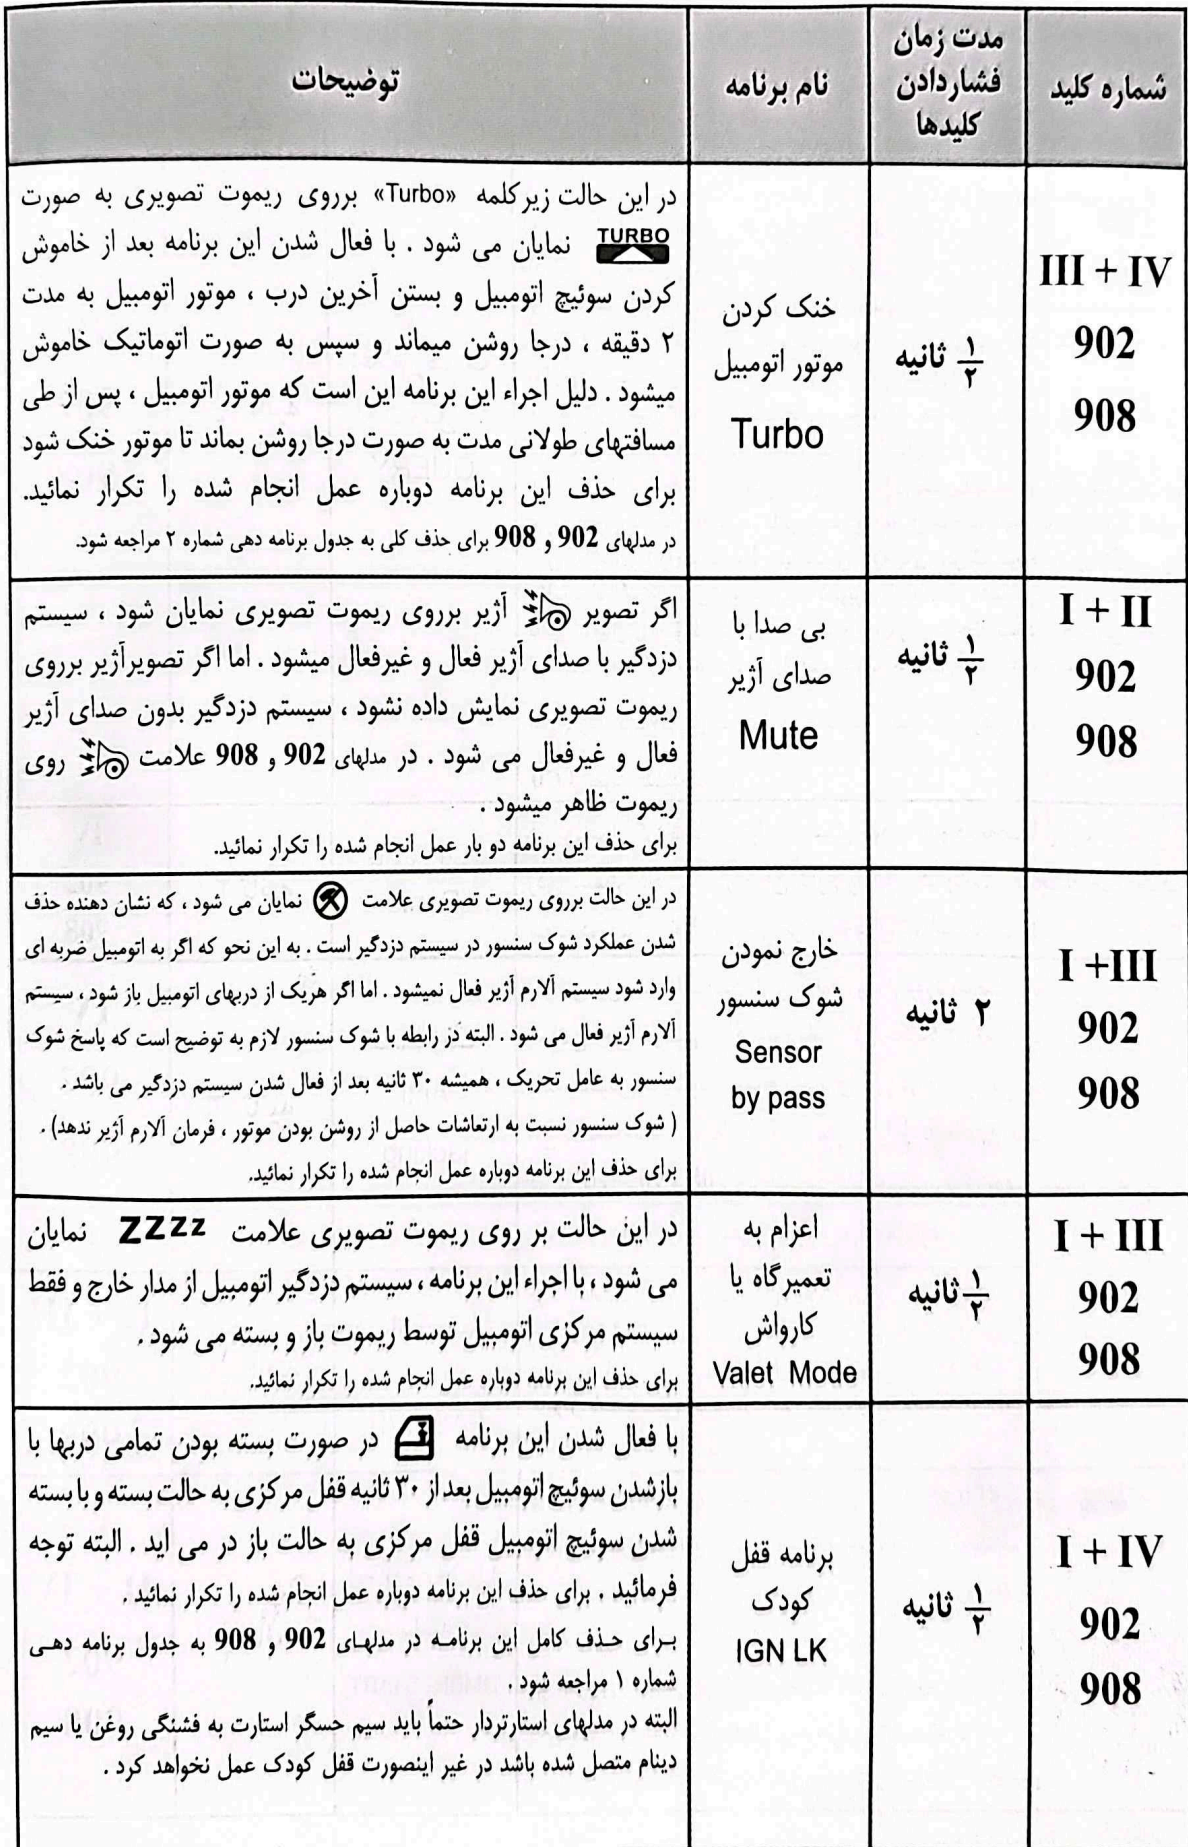 شماره کلید
مدت زمان
فشاردادن
کلیدها
نام برنامه
توضیحات
III + IV
902
908
۱/۲ ثانیه
خنک کردن
موتور اتومبیل
Turbo
در این حالت زیرکلمه «Turbo» برروی ریموت تصویری به صورت
TURBO نمایان می شود . با فعال شدن این برنامه بعد از خاموش
کردن سوئیچ اتومبیل و بستن آخرین درب ، موتور اتومبیل به مدت
۲ دقیقه ، درجا روشن میماند و سپس به صورت اتوماتیک خاموش
میشود . دلیل اجراء این برنامه این است که موتور اتومبیل ، پس از طی
مسافتهای طولانی مدت به صورت درجا روشن بماند تا موتور خنک شود
برای حذف این برنامه دوباره عمل انجام شده را تکرار نمائید.
در مدلهای 902 و 908 برای حذف کلی به جدول برنامه دهی شماره ۲ مراجعه شود.
I + II
902
908
۱/۲ ثانیه
بی صدا با
صدای آژیر
Mute
اگر تصویر آژیر برروی ریموت تصویری نمایان شود ، سیستم
دزدگیر با صدای آژیر فعال و غیرفعال میشود . اما اگر تصویرآژیر برروی
ریموت تصویری نمایش داده نشود ، سیستم دزدگیر بدون صدای آژیر
فعال و غیرفعال می شود . در مدلهای 902 و 908 علامت روی
ریموت ظاهر میشود .
برای حذف این برنامه دو بار عمل انجام شده را تکرار نمائید.
I +III
902
908
۲ ثانیه
خارج نمودن
شوک سنسور
Sensor
by pass
در این حالت برروی ریموت تصویری علامت نمایان می شود ، که نشان دهنده حذف
شدن عملکرد شوک سنسور در سیستم دزدگیر است . به این نحو که اگر به اتومبیل ضربه ای
وارد شود سیستم آلارم آژیر فعال نمیشود . اما اگر هریک از دربهای اتومبیل باز شود ، سیستم
آلارم آژیر فعال می شود . البته در رابطه با شوک سنسور لازم به توضیح است که پاسخ شوک
سنسور به عامل تحریک ، همیشه ۳۰ ثانیه بعد از فعال شدن سیستم دزدگیر می باشد .
( شوک سنسور نسبت به ارتعاشات حاصل از روشن بودن موتور ، فرمان آلارم آژیر ندهد) .
برای حذف این برنامه دوباره عمل انجام شده را تکرار نمائید.
I + III
902
908
۱/۲ ثانیه
اعزام به
تعمیرگاه یا
کارواش
Valet Mode
در این حالت بر روی ریموت تصویری علامت ZZZz نمایان
می شود ، با اجراء این برنامه ، سیستم دزدگیر اتومبیل از مدار خارج و فقط
سیستم مرکزی اتومبیل توسط ریموت باز و بسته می شود .
برای حذف این برنامه دوباره عمل انجام شده را تکرار نمائید.
I + IV
902
908
۱/۲ ثانیه
برنامه قفل
کودک
IGN LK
با فعال شدن این برنامه در صورت بسته بودن تمامی دربها با
بازشدن سوئیچ اتومبیل بعد از ۳۰ ثانیه قفل مرکزی به حالت بسته و با بسته
شدن سوئیچ اتومبیل قفل مرکزی به حالت باز در می اید . البته توجه
فرمائید . برای حذف این برنامه دوباره عمل انجام شده را تکرار نمائید .
برای حذف کامل این برنامه در مدلهای 902 و 908 به جدول برنامه دهی
شماره ۱ مراجعه شود .
البته در مدلهای استارتردار حتماً باید سیم حسگر استارت به فشنگی روغن یا سیم
دینام متصل شده باشد در غیر اینصورت قفل کودک عمل نخواهد کرد .